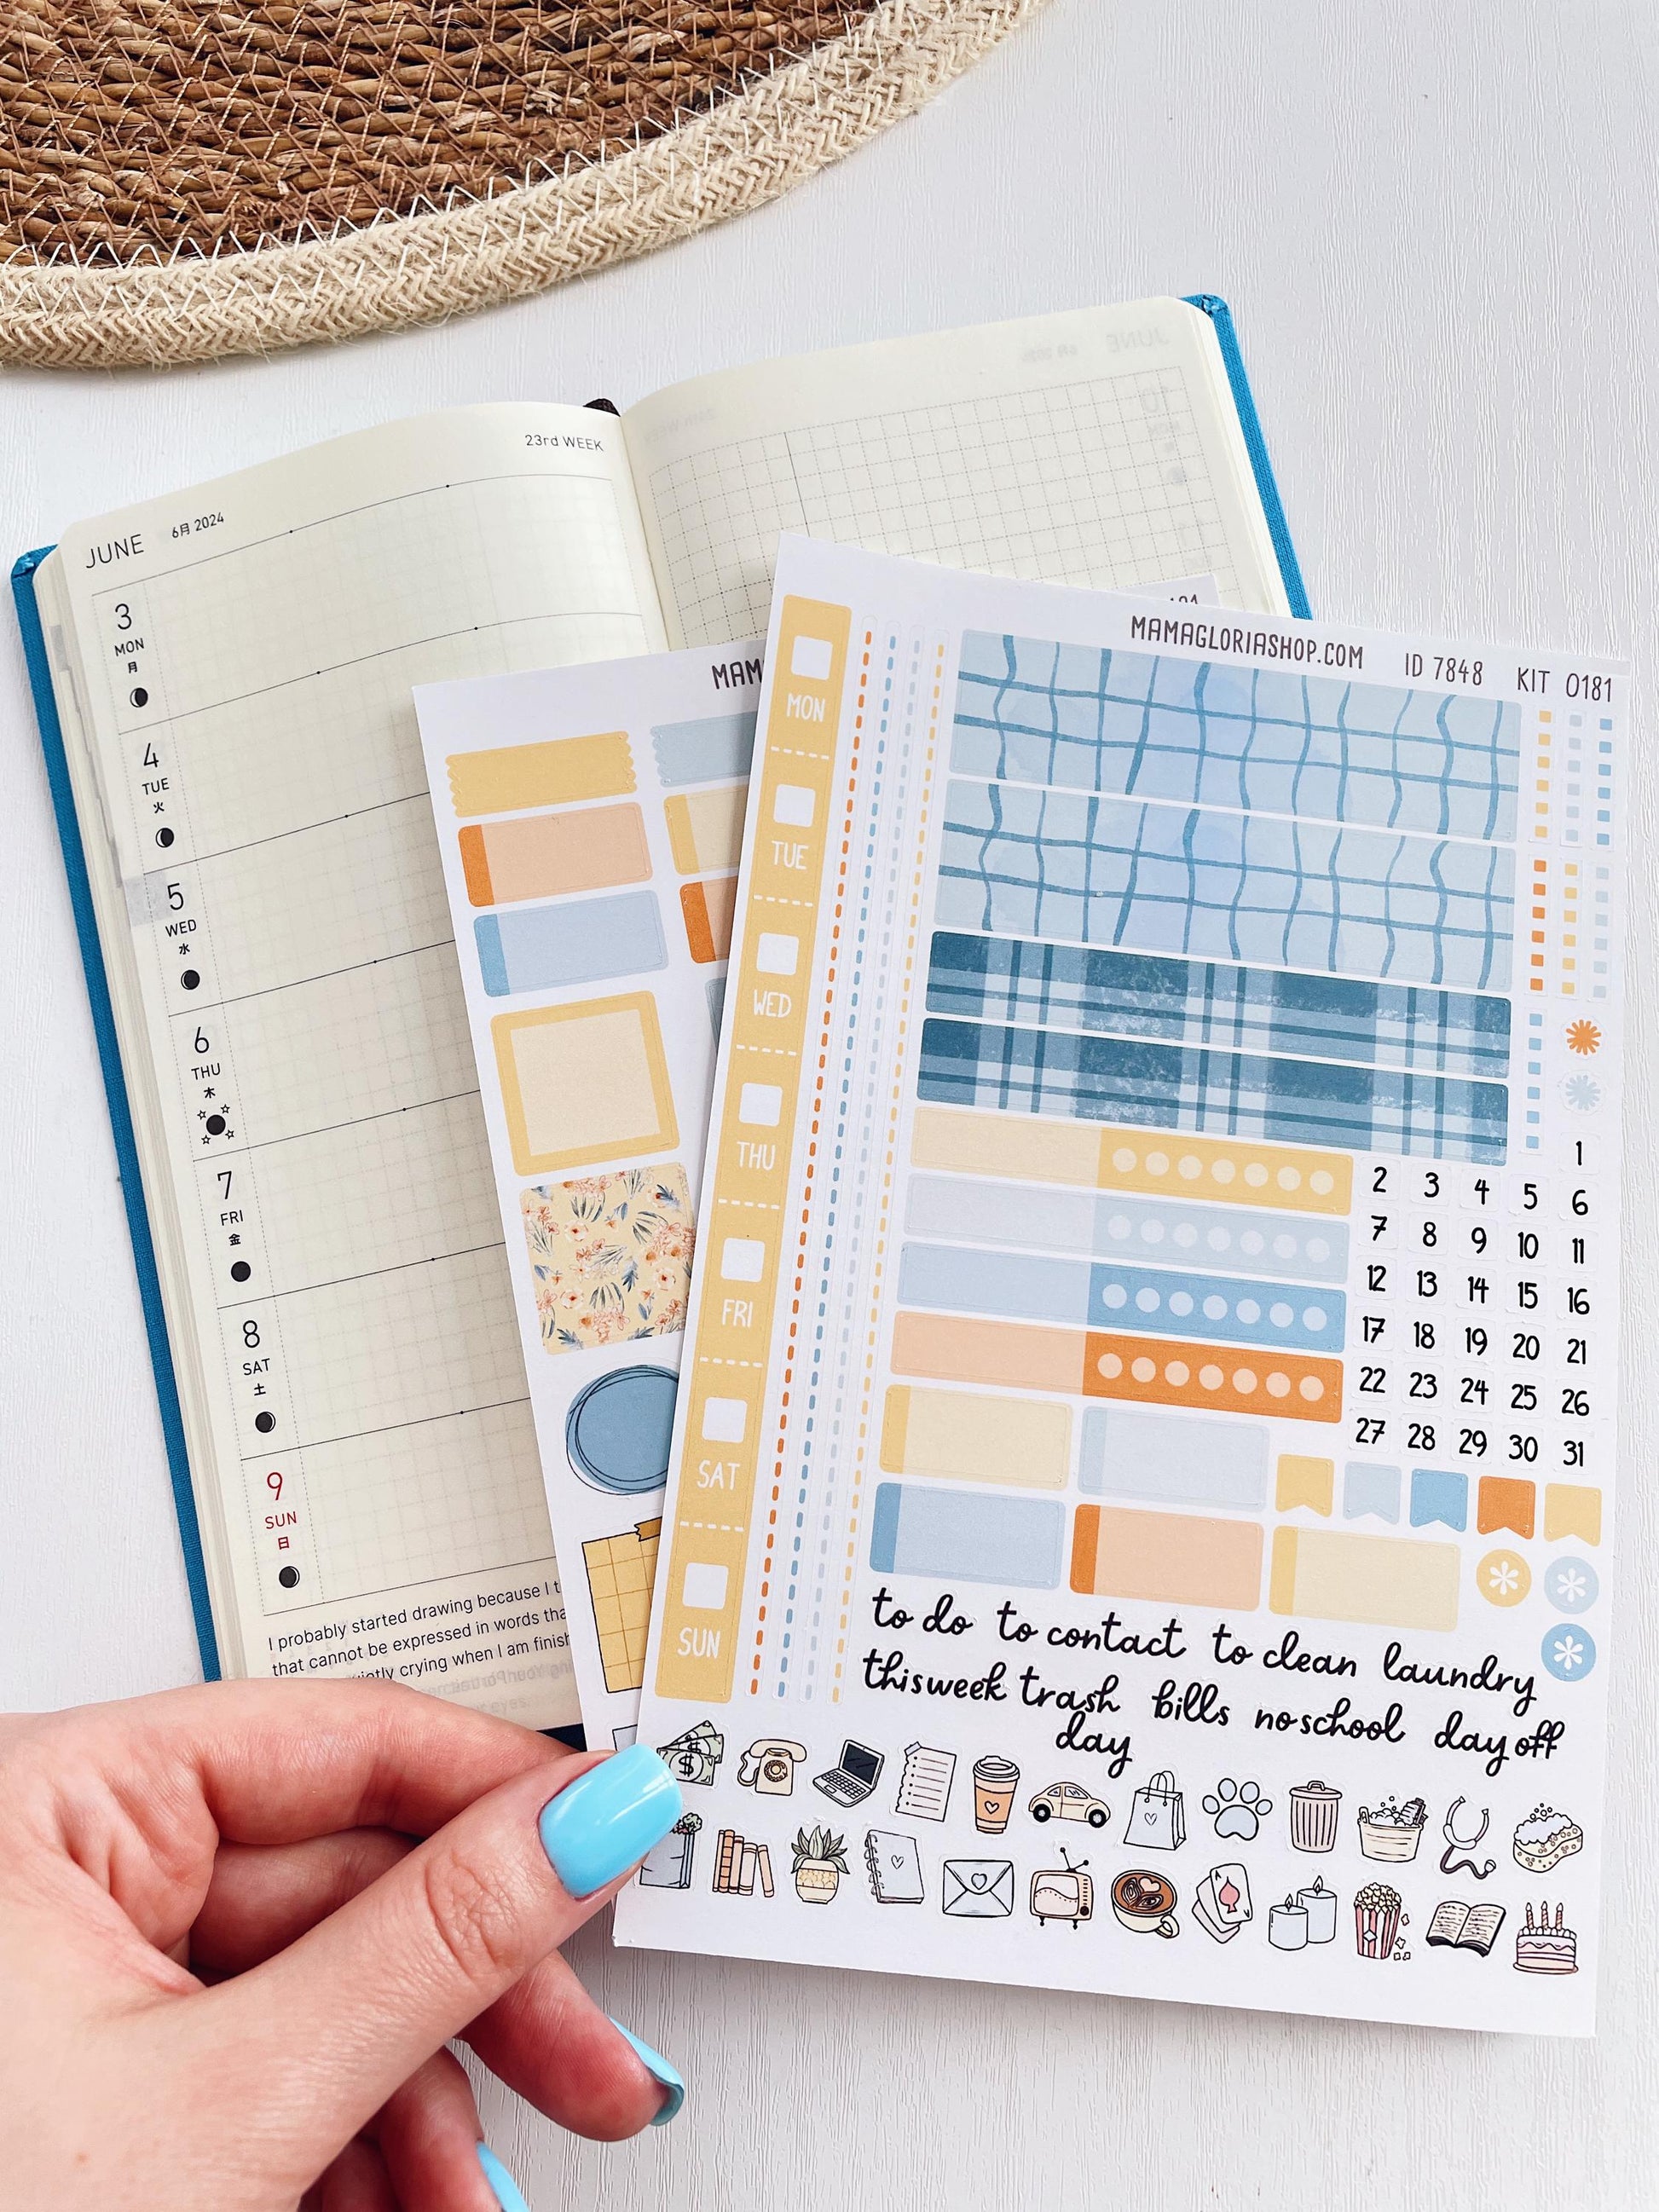 23rd WEEK
JUNE 6月 2024
3
MON
月
4
TUE
火
5
WED
水
6
THU
木
7
FRI
金
8
SAT
土
9
SUN
日
I probably started drawing because I
that cannot be expressed in words
crying when I am
MAM
MAMAGLORIASHOP.COM ID 7848 KIT 0181
MON
TUE
WED
THU
FRI
SAT
SUN
1
2 3 4 5 6
7 8 9 10 11
12 13 14 15 16
17 18 19 20 21
22 23 24 25 26
27 28 29 30 31
to do to contact to clean laundry
this week trash day bills no school day off